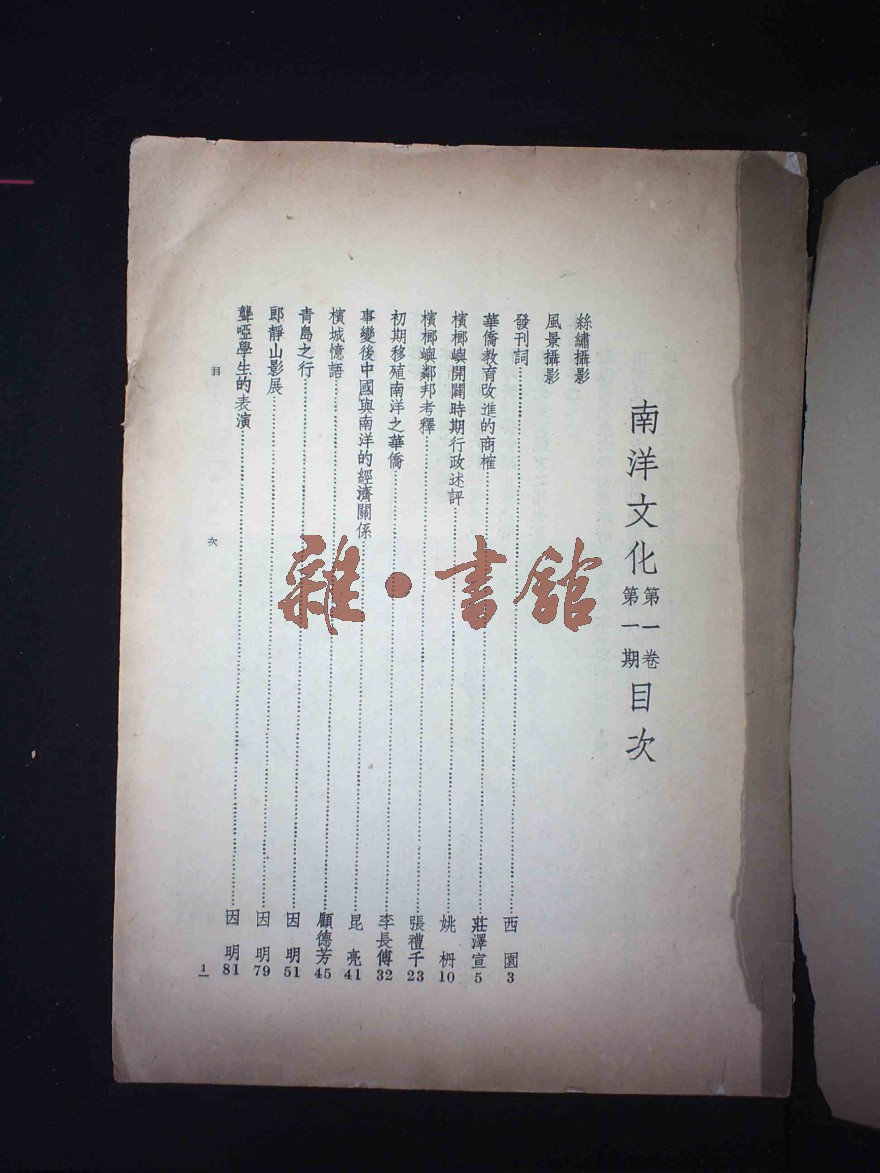 南洋文化 第一卷 第一期 目次
絲繡攝影
風景攝影
發刊詞 西園 3
華僑教育改進的商榷 莊澤宣 5
檳榔嶼開闢時期行政述評 姚枬 10
檳榔嶼鄰邦考釋 張禮千 23
初期移殖南洋之華僑 李長傅 32
事變後中國與南洋的經濟關係 昆亮 41
檳城憶語 顧德芳 45
青島之行 因明 51
郎靜山影展 因明 79
聾啞學生的表演 因明 81
目次
1
雜·書館